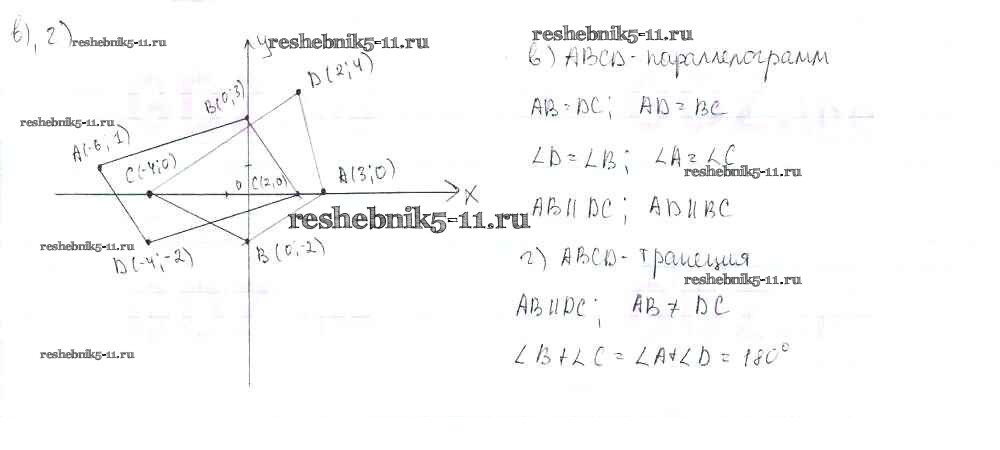 в), г) reshebnik5-11.ru
y reshebnik5-11.ru
D(2;4)
B(0;3)
reshebnik5-11.ru
A(-6;1)
C(-4;0)
0 C(2;0) A(3;0)
X
reshebnik5-11.ru
reshebnik5-11.ru
D(-4;-2)
B(0;-2)
reshebnik5-11.ru
reshebnik5-11.ru
в) ABCD - параллелограмм
AB = DC; AD = BC
∠D = ∠B; ∠A = ∠C
reshebnik5-11.ru
AB || DC; AD || BC
г) ABCD - трапеция
reshebnik5-11.ru
AB || DC; AB ≠ DC
∠B + ∠C = ∠A + ∠D = 180°